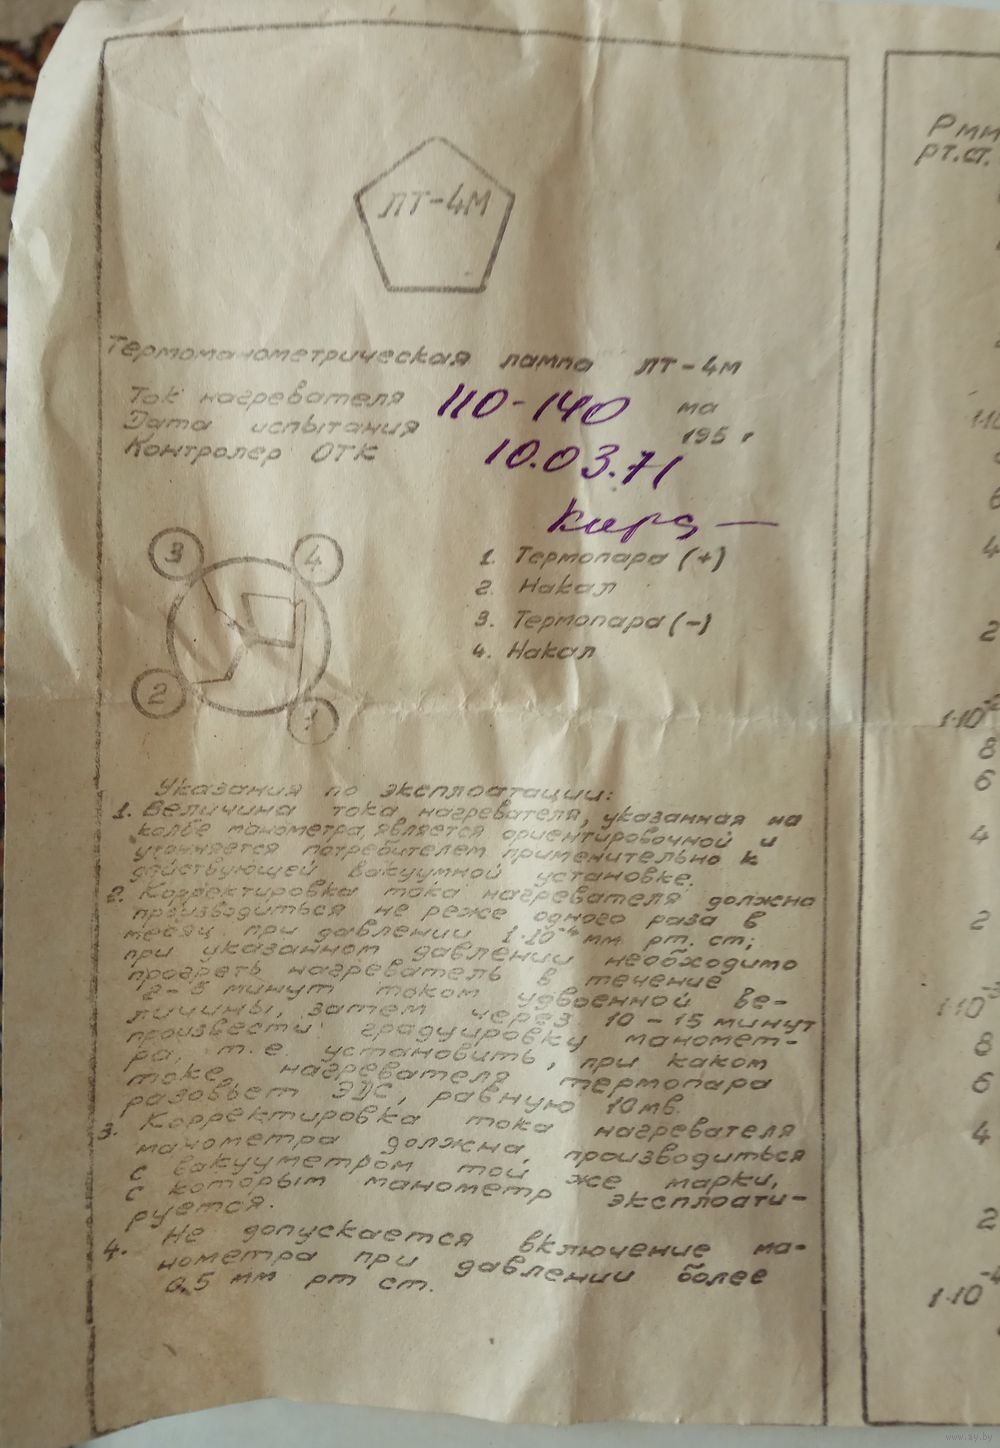 ЛТ-4М
Термоманометрическая лампа ЛТ-4М
Ток нагревателя 110-140 ма
Дата испытания 195 г
Контролер ОТК 10.03.71
3
4
2
1
1. Термопара (+)
2. Накал
3. Термопара (-)
4. Накал
Указания по эксплоатации:
1. Величина тока нагревателя, указанная на
колбе манометра, является ориентировочной и
уточняется потребителем применительно к
действующей вакуумной установке.
2. Корректировка тока нагревателя должна
производиться не реже одного раза в
месяц при давлении 1·10⁻⁴ мм рт. ст;
при указанном давлении необходимо
прогреть нагреватель в течение
2-5 минут током удвоенной ве-
личины, затем через 10-15 минут
произвести градуировку маномет-
ра, т.е. установить, при каком
токе нагревателя термопара
разовьет ЭДС, равную 10мв.
3. Корректировка тока нагревателя
манометра должна производиться
с вакууметром той же марки,
с которым манометр эксплоати-
руется.
4. Не допускается включение ма-
нометра при давлении более
0,5 мм рт ст.
P мм
рт.ст.
6
4
2
8
6
4
2
8
6
4
2
www.ay.by